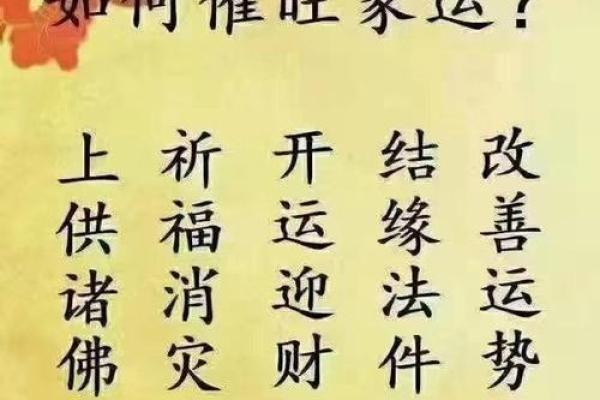 如何催旺家运?
上供诸佛
祈福消灾
开运迎财
结缘法件
改善运势